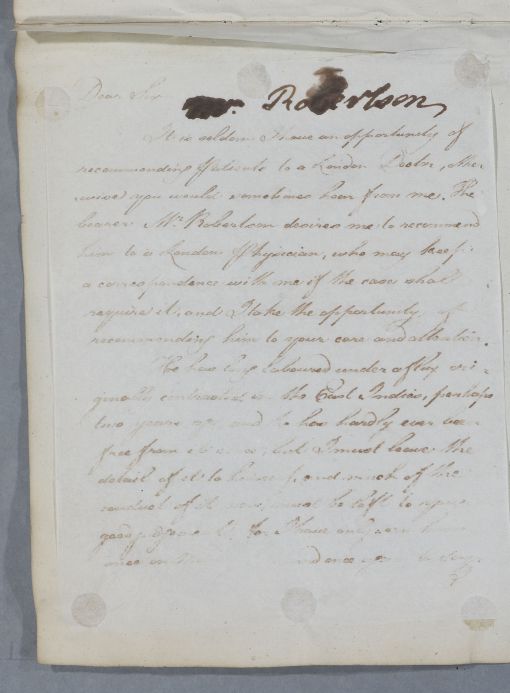 Dear Sir
Mr. Robertson
It is seldom I have an opportunity of
recommending Patients to a London Doctor, other
-wise you would sometimes hear from me. The
bearer Mr. Robertson desires me to recommend
him to a London Physician, who may keep
a correspondence with me if the case shall
require it, and I take the opportunity of
recommending him to your care and attention.
He has long laboured under a flux ori-
ginally contracted in the East Indies, perhaps
two years ago, and he has hardly ever been
free from it since, but I must leave the
detail of it to himself, and much of the
conduct of it now must be left to your
good judgement, for I have only seen him
once